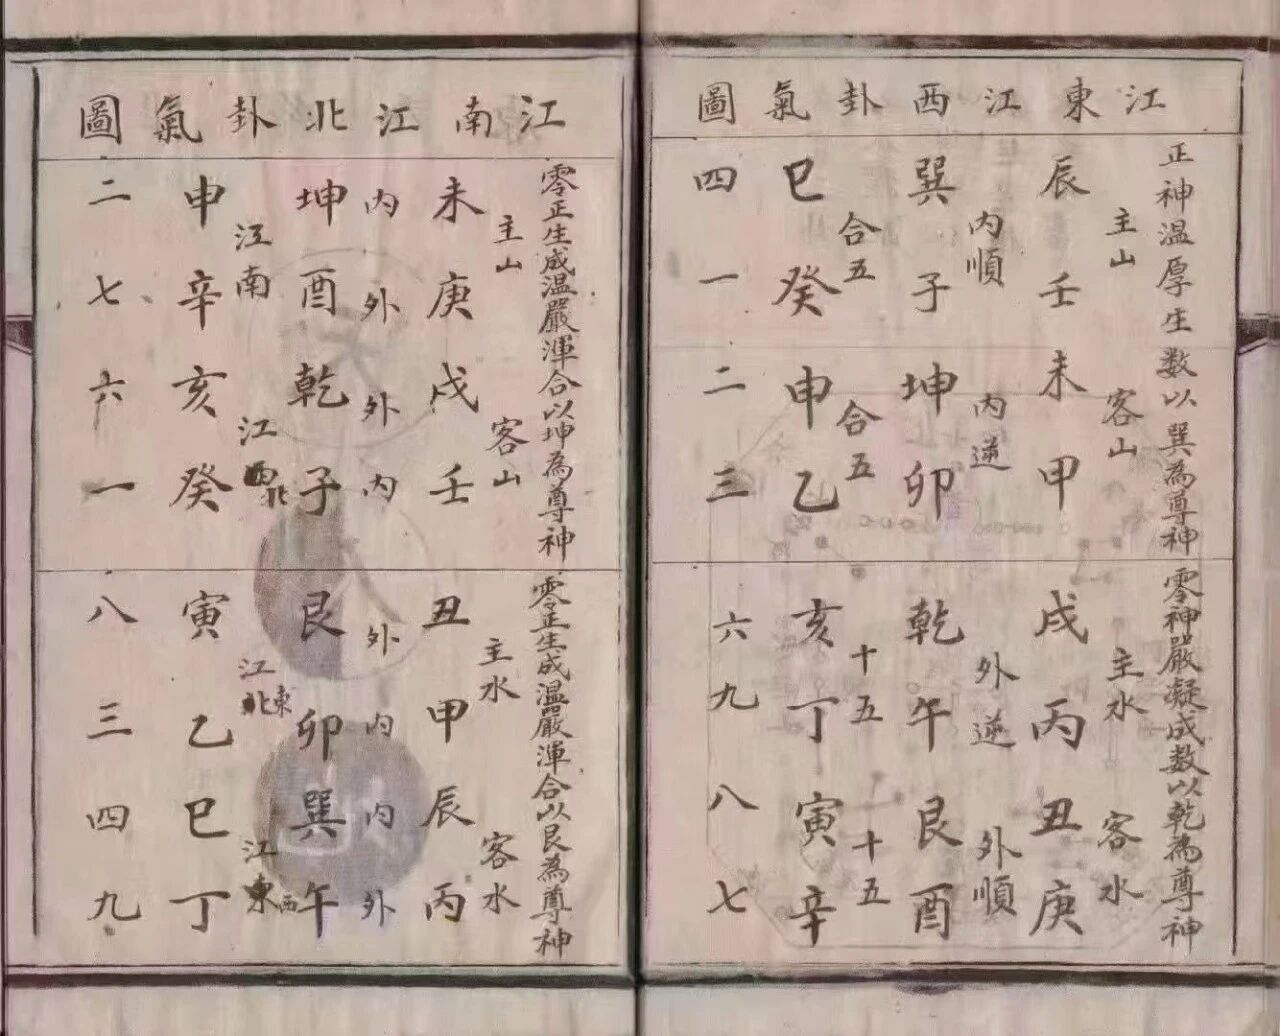 江東江西卦氣圖
正神温厚生數以巽為尊神
零神嚴凝成數以乾為尊神
主山 客山 主水 客水
辰壬未甲戌丙丑庚
内順 内逆 外逆 外順
巽子坤卯乾午艮酉
合五 合五 十五 十五
巳癸申乙亥丁寅辛
四一二三六九八七
江南江北卦氣圖
零正生成温嚴渾合以坤為尊神
零正生成温嚴渾合以艮為尊神
主山 客山 主水 客水
未庚戌壬丑甲辰丙
内外外内外内内外
坤酉乾子艮卯巽午
江南 江西北 江北東 江東西
申辛亥癸寅乙巳丁
二七六一八三四九